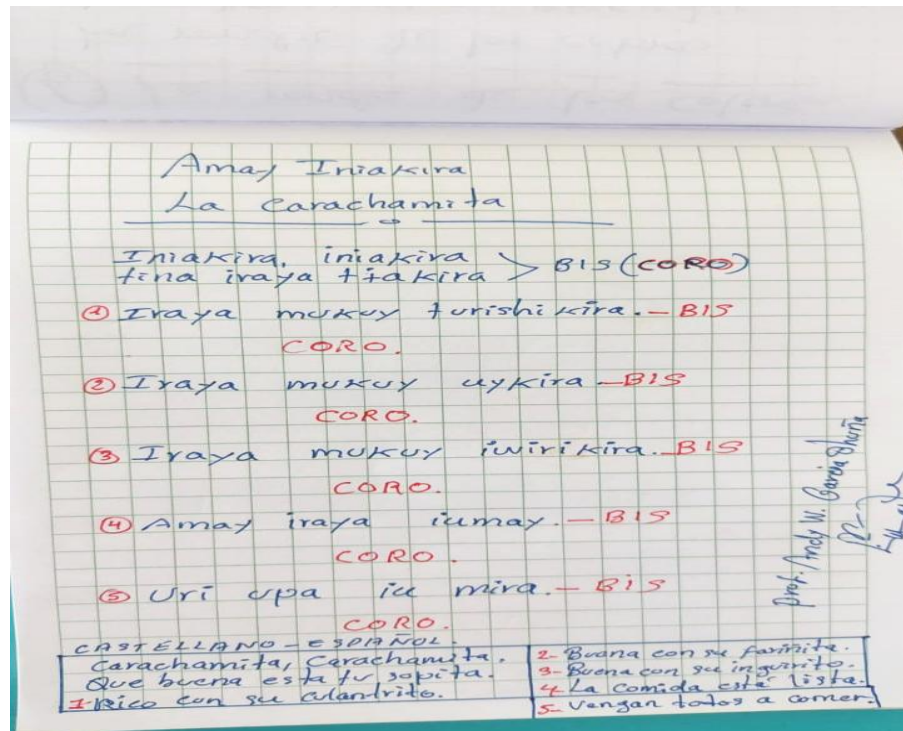 Amay Iniakira
La Carachamita
Iniakira, iniakira
tina iraya tiakira > BIS (CORO)
① Iraya mukuy turishikira. - BIS
CORO.
② Iraya mukuy uykira - BIS
CORO.
③ Iraya mukuy iwirikira. BIS
CORO.
④ Amay iraya iumay. - BIS
CORO.
⑤ Uri upa iu mira. - BiS
CORO.
Prof. Andy W. Garcia
CASTELLANO - ESPAÑOL.
Carachamita, Carachamita.
Que buena esta tu sopita.
1- Rico con su culandrito.
2- Buena con su fariñita.
3- Buena con su inguirito.
4- La comida está lista.
5- Vengan todos a comer.